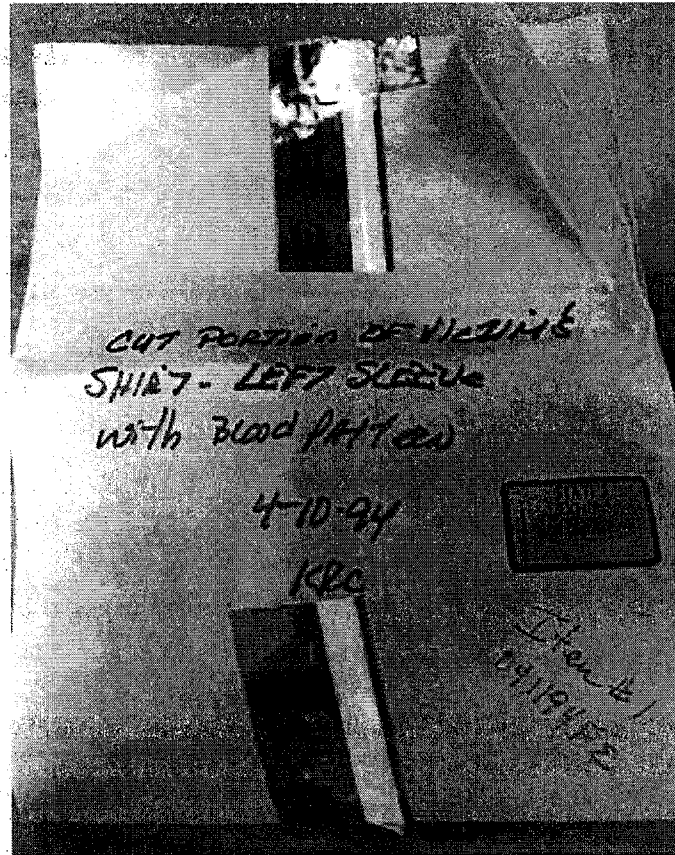 CUT PORTION OF VICTIM'S
SHIRT - LEFT SLEEVE
with Blood PATTERN
4-10-94
KRC
Item # 1
041194FE